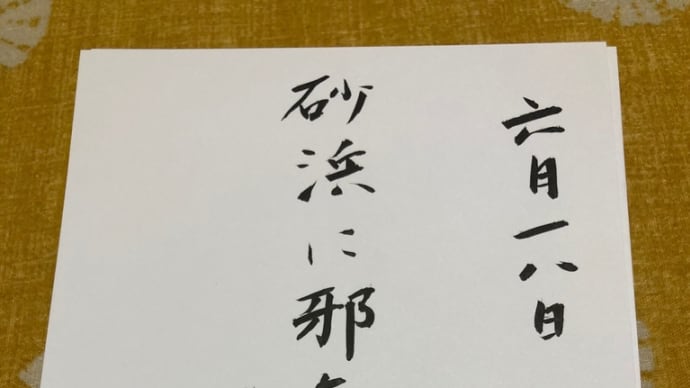 六月一八日
砂浜に邪